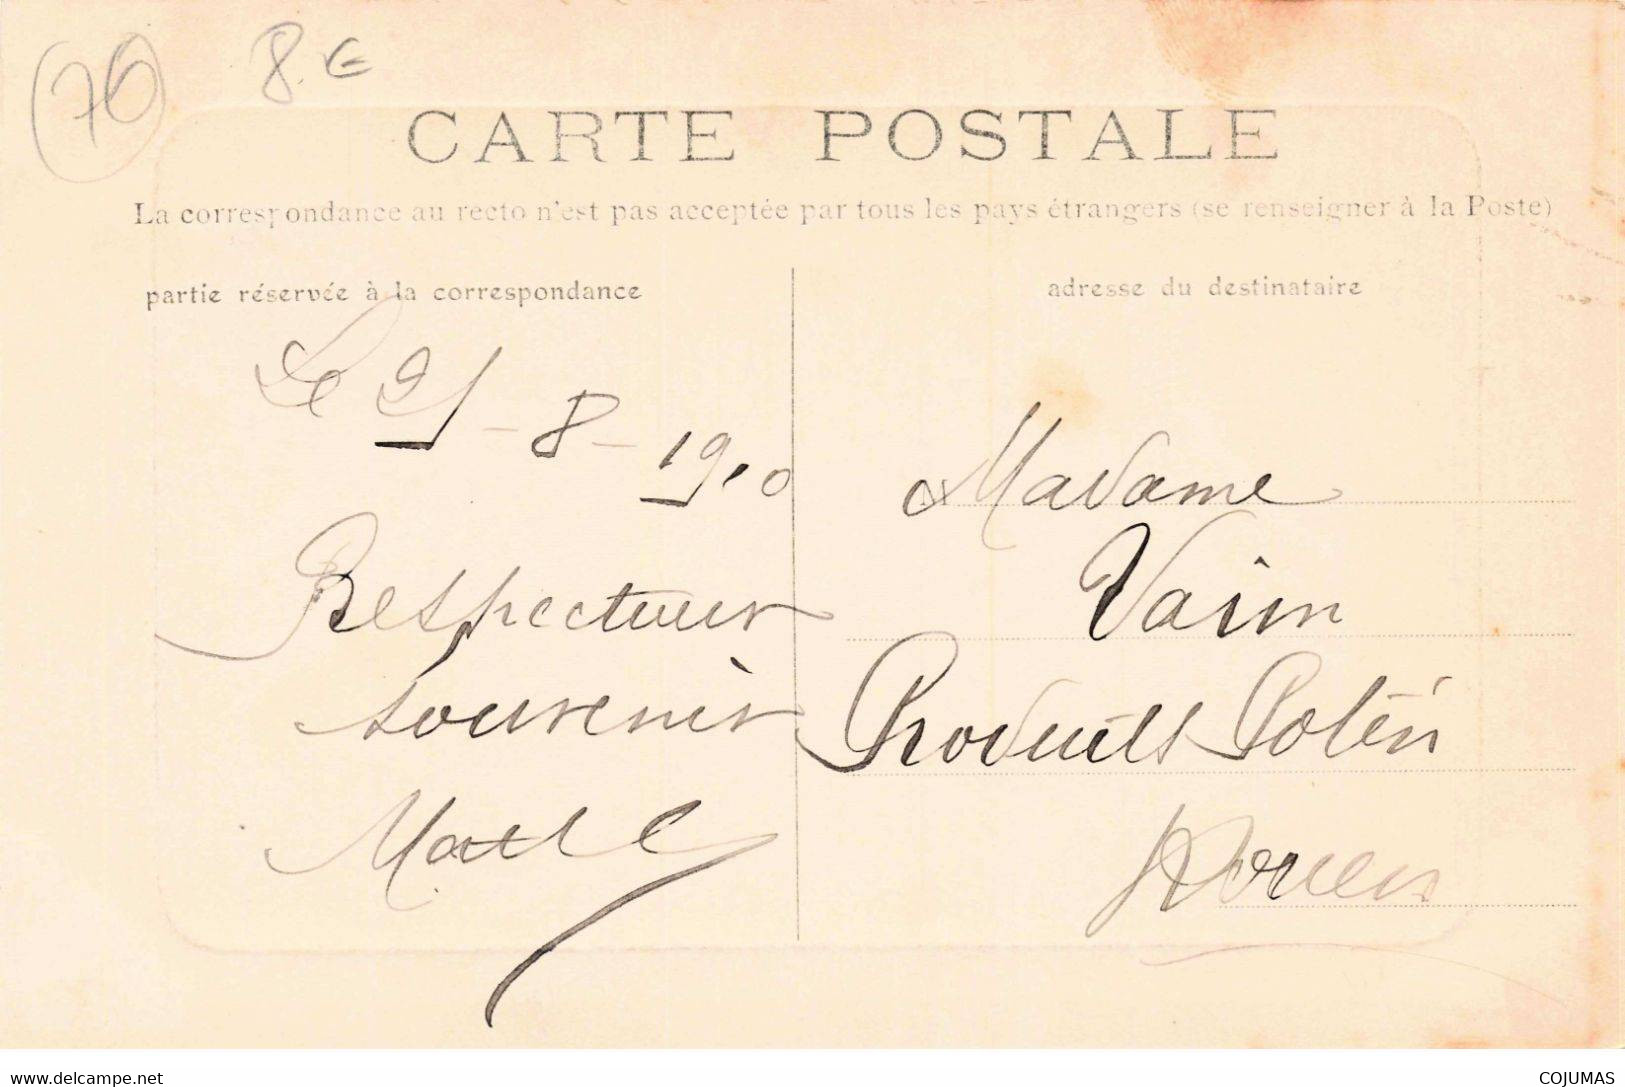 76 8.€
CARTE POSTALE
La correspondance au recto n'est pas acceptée par tous les pays étrangers (se renseigner à la Poste)
partie réservée à la correspondance
adresse du destinataire
Le 25-8-1910
Respectueux
souvenir
Madame
Produits Potin
Rouen
www.delcampe.net
COJUMAS